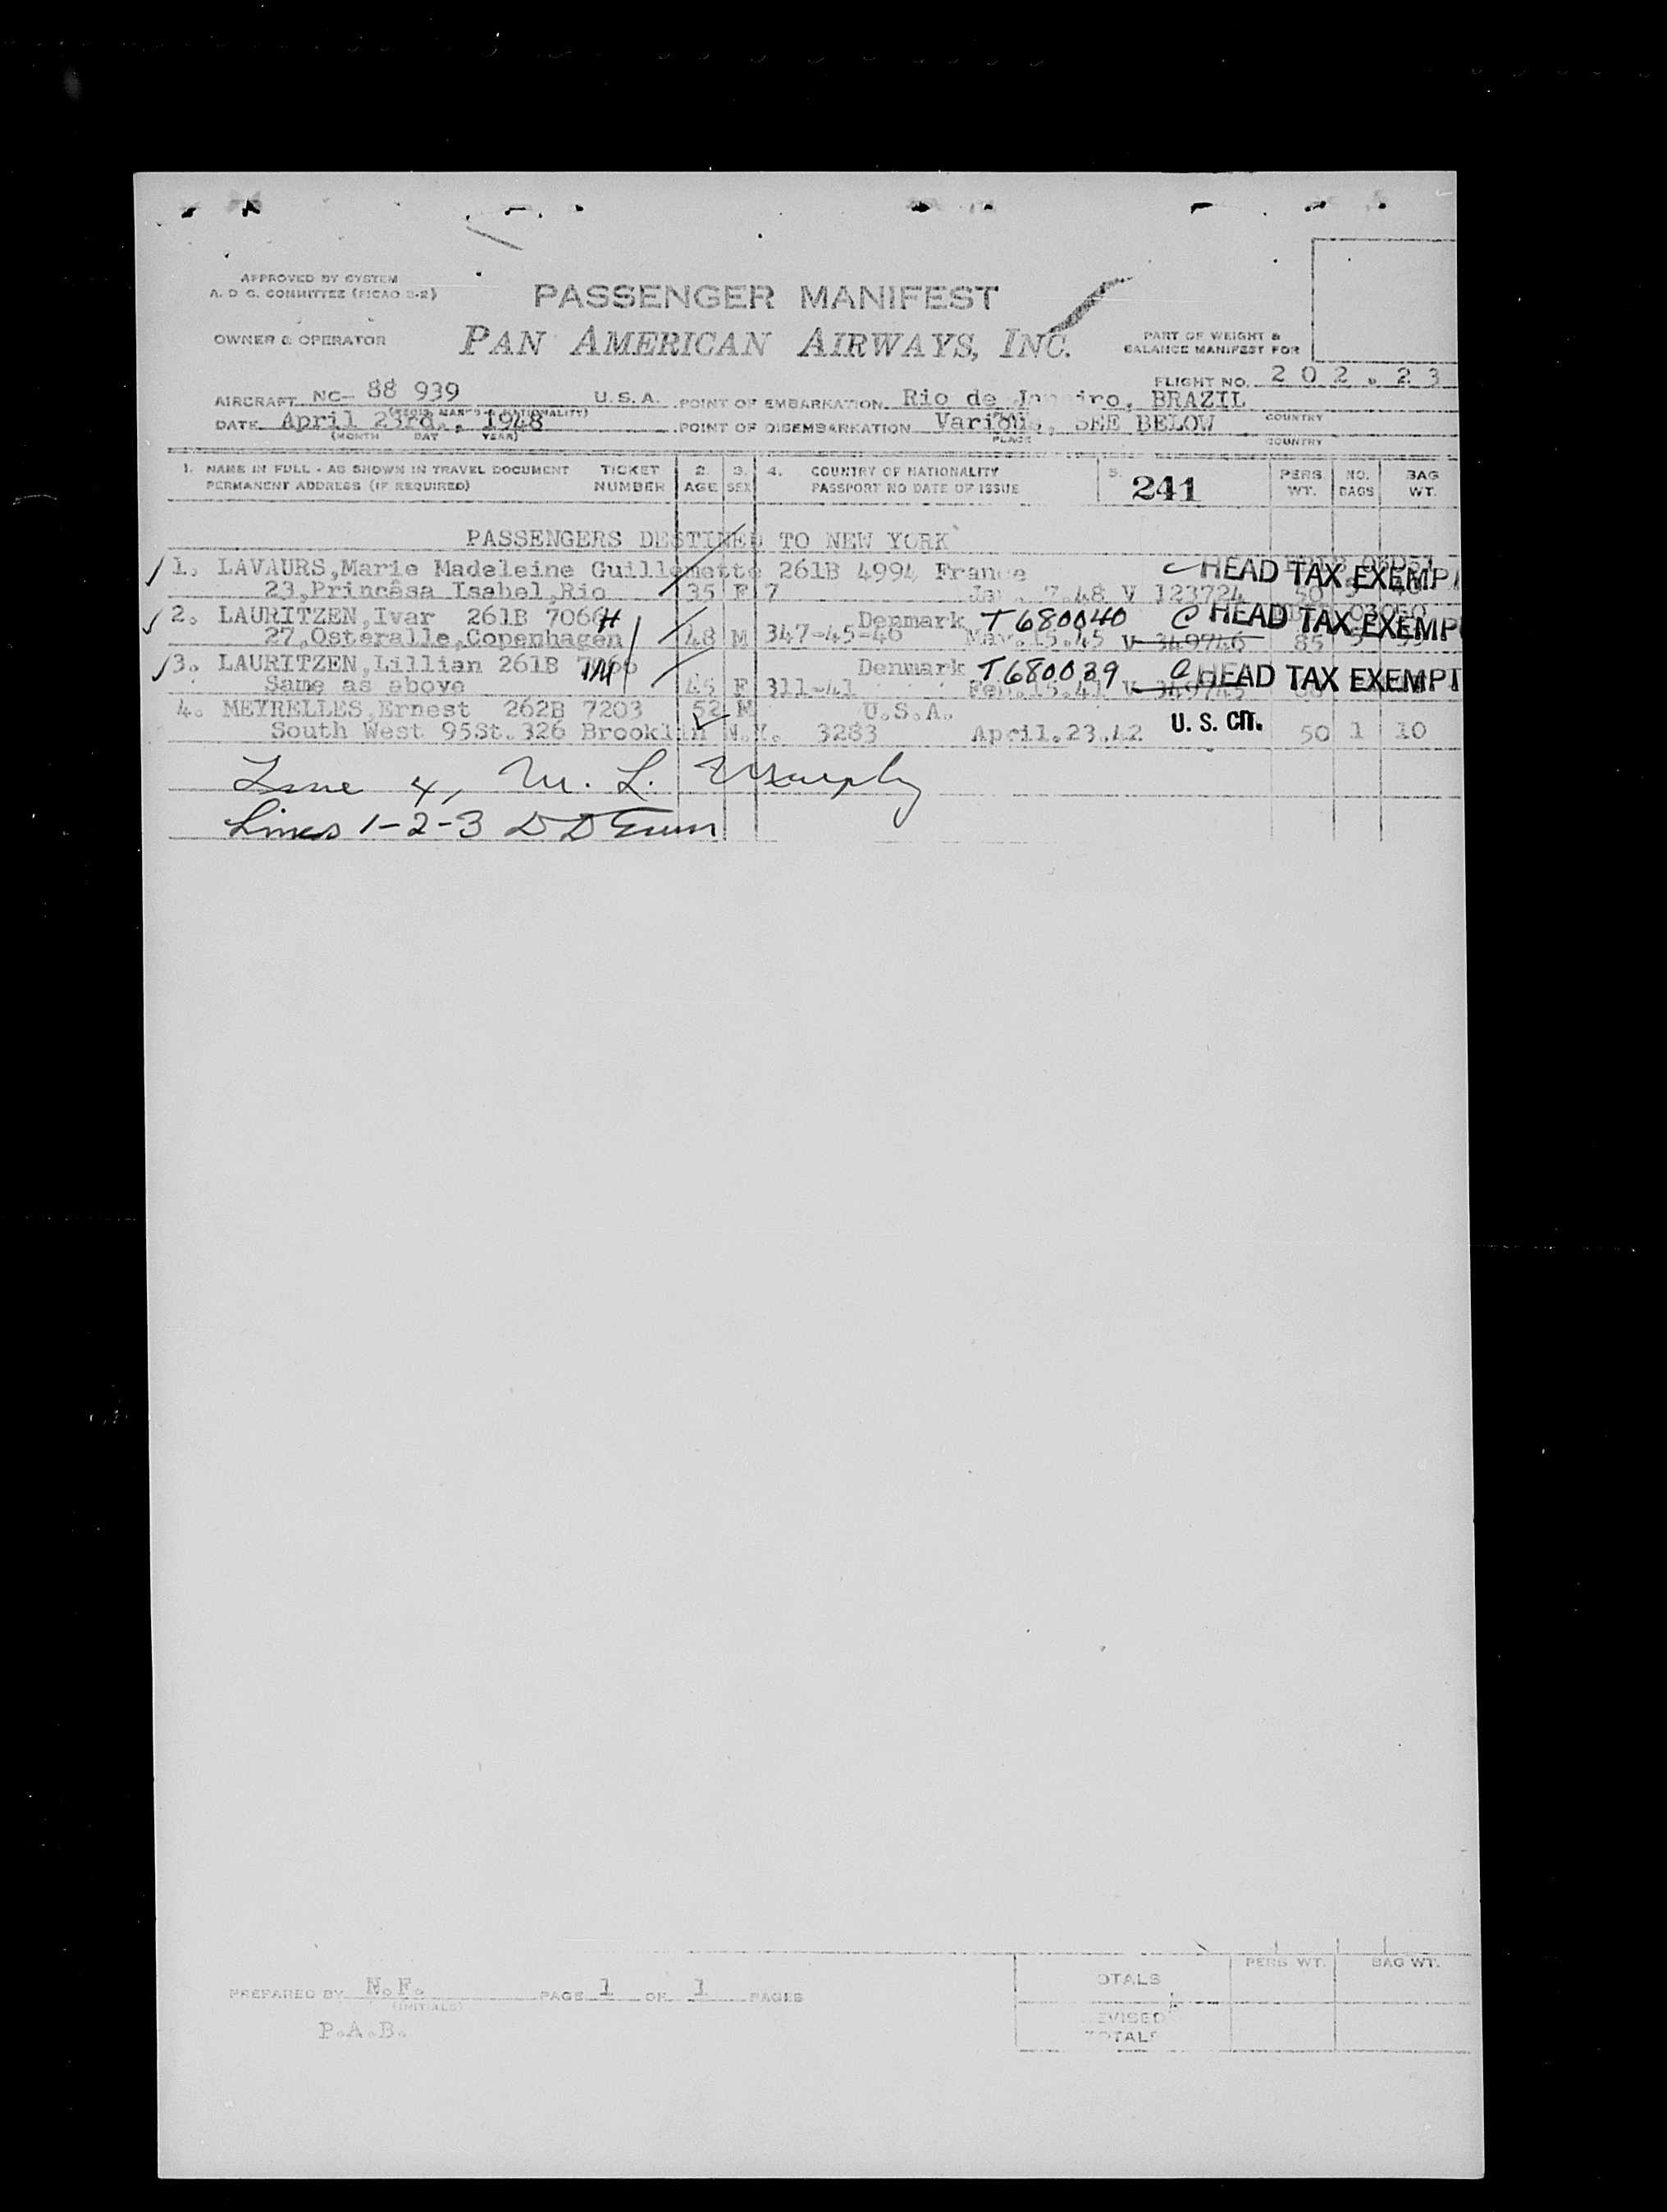 APPROVED BY SYSTEM
A. D C. COMMITTEE (FICAO S-2)
PASSENGER MANIFEST
OWNER & OPERATOR
PAN AMERICAN AIRWAYS, INC.
PART OF WEIGHT &
BALANCE MANIFEST FOR
FLIGHT NO. 202.23
AIRCRAFT NC- 88 939 U.S.A. POINT OF EMBARKATION Rio de Janeiro, BRAZIL
(REGIS. MARKS & NATIONALITY) COUNTRY
DATE April 23rd., 1948 POINT OF DISEMBARKATION Various, SEE BELOW
(MONTH DAY YEAR) PLACE COUNTRY
1. NAME IN FULL - AS SHOWN IN TRAVEL DOCUMENT TICKET 2. 3. 4. COUNTRY OF NATIONALITY 5. 241 PERS. NO. BAG
PERMANENT ADDRESS (IF REQUIRED) NUMBER AGE SEX PASSPORT NO DATE OF ISSUE WT. BAGS WT.
PASSENGERS DESTINED TO NEW YORK
1. LAVAURS,Marie Madeleine Guillemette 261B 4994 France HEAD TAX EXEMPT
23,Princêsa Isabel,Rio 35 F 7 Jan. 7.48 V 123724 50
2. LAURITZEN,Ivar 261B 7066 H Denmark T680040 C HEAD TAX EXEMPT
27,Osteralle,Copenhagen 48 M 347-45-46 May.15.45 V 349746 85
3. LAURITZEN,Lillian 261B Denmark T680039 C HEAD TAX EXEMPT
Same as above 45 F 311-41 Feb.15.41 V 349745
4. MEYRELLES,Ernest 262B 7203 52 M U.S.A.
South West 95St.326 Brooklin N.Y. 3283 April.23.42 U. S. CIT. 50 1 10
Line 4, M. L. Murphy
Lines 1-2-3 D D
PERS WT. BAG WT.
PREPARED BY N.F. PAGE 1 OF 1 PAGES OTALS
(INITIALS)
P.A.B. EVISED
TOTALS